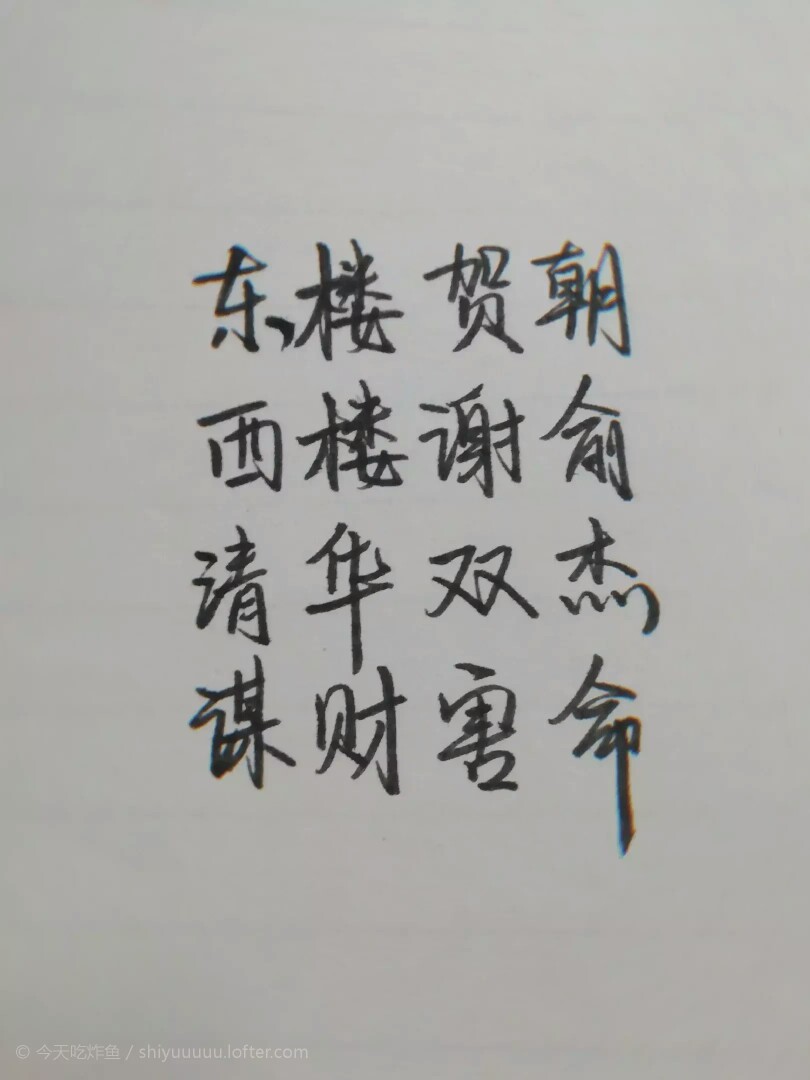 东楼贺朝
西楼谢俞
清华双杰
谋财害命
© 今天吃炸鱼 / shiyuuuuu.lofter.com